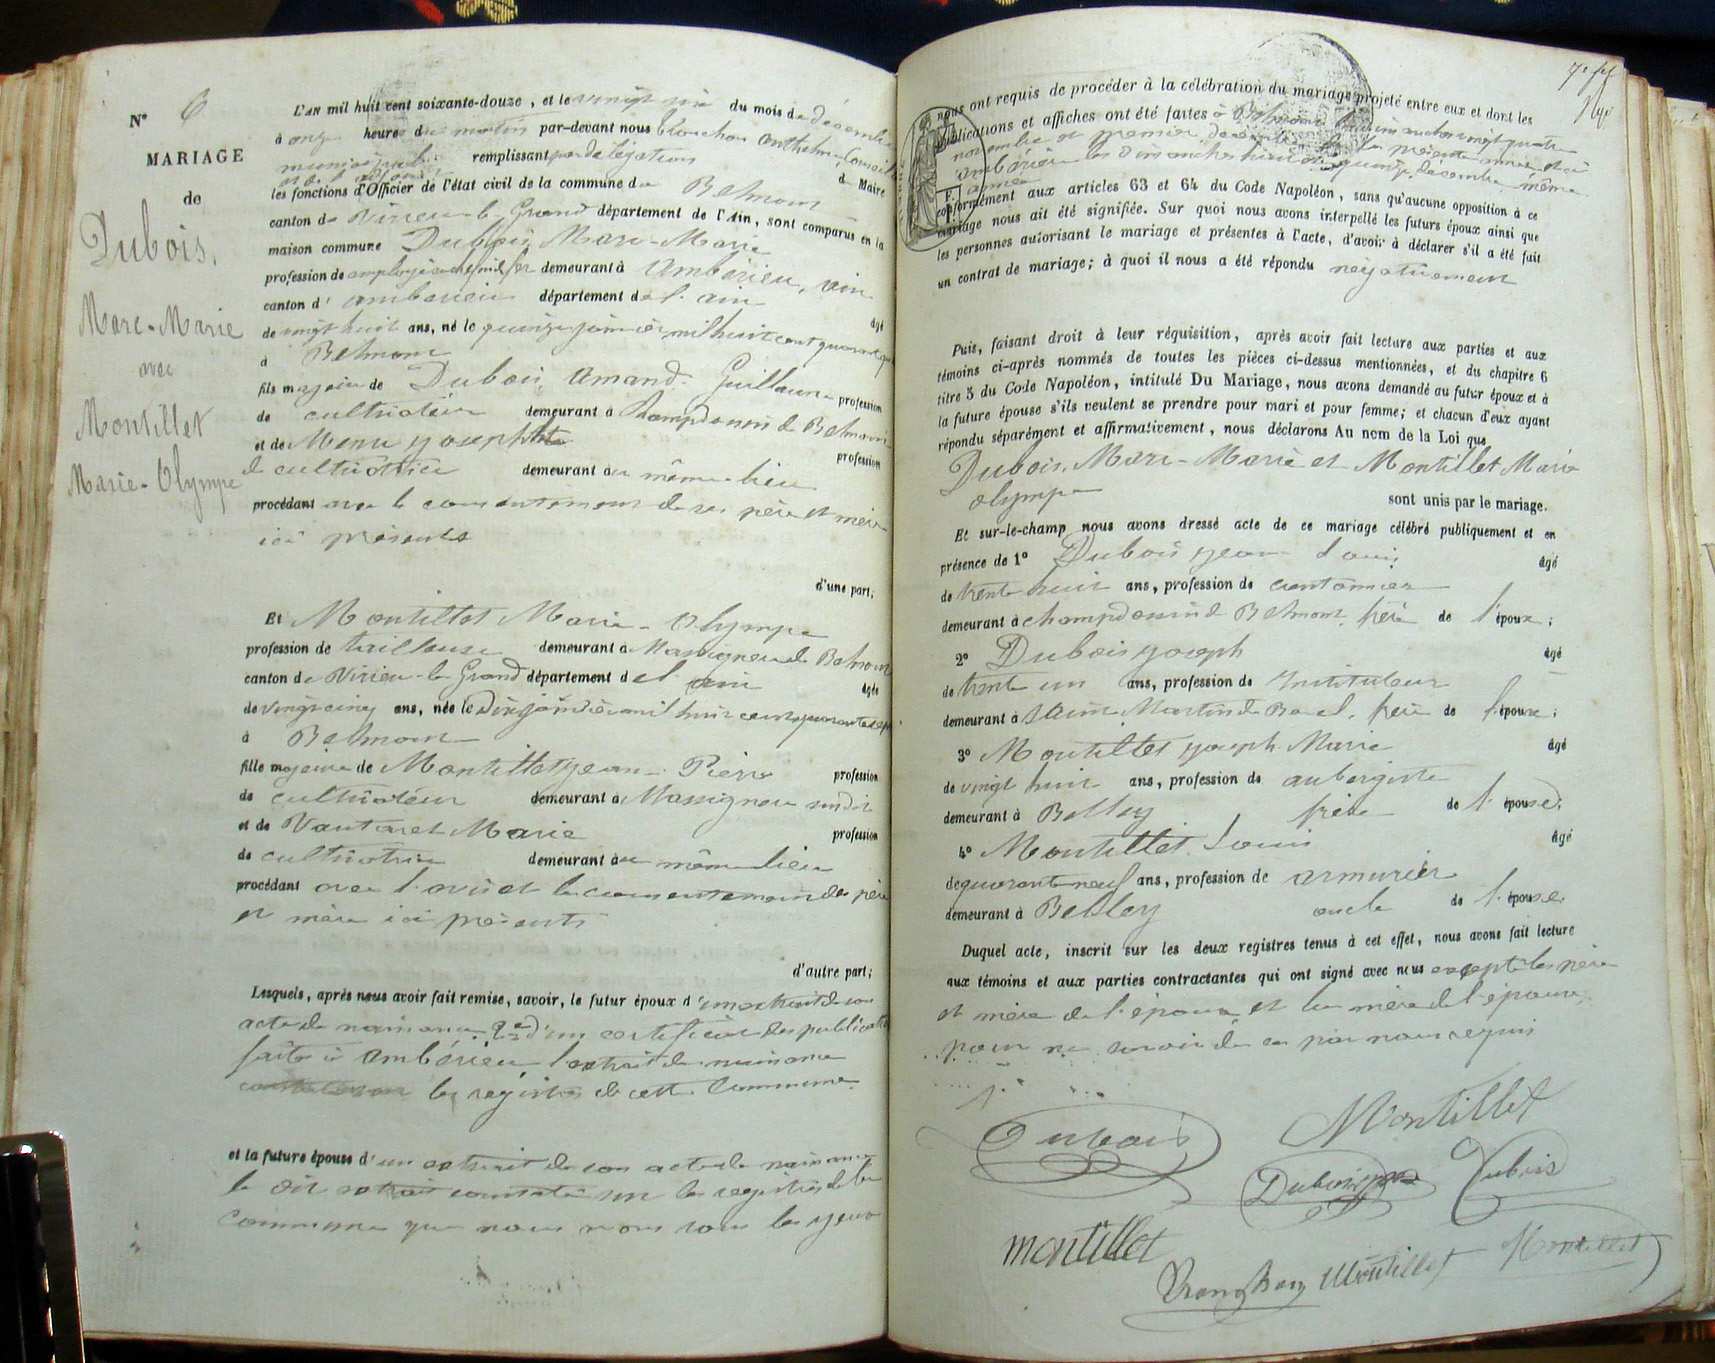 N° 6
MARIAGE
de
Dubois,
Marc-Marie
avec
Montillet
Marie-Olympe
L'AN mil huit cent soixante-douze, et le vingt six du mois de décembre
à onze heures du matin par-devant nous anthelme Conseil
municipal remplissant par délégation
d Maire
les fonctions d'Officier de l'état civil de la commune de Belmont
canton de Virieu-le-Grand département de l'Ain, sont comparus en la
maison commune Dubois, Marc-Marie
profession de employé au chemin de fer demeurant à Ambérieu, ain
canton d' ambérieu département de l'ain
âgé
de vingt huit ans, né le quinze janvier mil huit cent quarante
à Belmont
fils majeur de Dubois, Amand Guillaume profession
de cultivateur demeurant à Champdossin de Belmont
et de Menu josephte profession
de cultivatrice demeurant au même lieu
procédant avec le consentement de ses père et mère
ici présents
d'une part;
Et Montillet Marie-Olympe
profession de tailleuse demeurant à Massigneu de Belmont
canton de Virieu-le-Grand département de l'ain
âgée
de vingt cinq ans, née le Dix janvier mil huit cent quarante sept
à Belmont
fille majeure de Montillet jean-Pierre profession
de cultivateur demeurant à Massigneu susdit
et de Vautaret Marie profession
de cultivatrice demeurant au même lieu
procédant avec l'avis et le consentement des père
et mère ici présents
d'autre part;
Lesquels, après nous avoir fait remise, savoir, le futur époux d'un extrait de son
acte de naissance 2° d'un certificat des publications
faites à Ambérieu l'extrait de naissance
les registres de cette Commune
et la future épouse d'un extrait de son acte de naissance
le dit extrait constaté sur les registres de la
Commune que nous avons sous les yeux
nous ont requis de procéder à la célébration du mariage projeté entre eux et dont les
publications et affiches ont été faites à Belmont vingt quatre
novembre et premier décembre présente année et à
ambérieu les dimanches huit et quinze décembre même
année
conformément aux articles 63 et 64 du Code Napoléon, sans qu'aucune opposition à ce
mariage nous ait été signifiée. Sur quoi nous avons interpellé les futurs époux ainsi que
les personnes autorisant le mariage et présentes à l'acte, d'avoir à déclarer s'il a été fait
un contrat de mariage; à quoi il nous a été répondu négativement
Puis, faisant droit à leur réquisition, après avoir fait lecture aux parties et aux
témoins ci-après nommés de toutes les pièces ci-dessus mentionnées, et du chapitre 6
titre 5 du Code Napoléon, intitulé Du Mariage, nous avons demandé au futur époux et à
la future épouse s'ils veulent se prendre pour mari et pour femme; et chacun d'eux ayant
répondu séparément et affirmativement, nous déclarons Au nom de la Loi que
Dubois, Marc-Marie et Montillet Marie
olympe
sont unis par le mariage.
Et sur-le-champ nous avons dressé acte de ce mariage célébré publiquement et en
présence de 1° Dubois jean Louis âgé
de trente huit ans, profession de cantonnier
demeurant à champdossin de Belmont, frère de l'époux;
2° Dubois joseph âgé
de trente un ans, profession de Instituteur
demeurant à saint Martin de Bavel, frère de l'époux;
3° Montillet joseph Marie âgé
de vingt huit ans, profession de aubergiste
demeurant à Belley frère de l'épouse;
4° Montillet Louis âgé
de quarante neuf ans, profession de armurier
demeurant à Belley oncle de l'épouse.
Duquel acte, inscrit sur les deux registres tenus à cet effet, nous avons fait lecture
aux témoins et aux parties contractantes qui ont signé avec nous excepté les père
et mère de l'époux et la mère de l'épouse
pour ne savoir de ce par nous requis
Dubois
Montillet
Dubois
Dubois
montillet
Montillet
Montillet